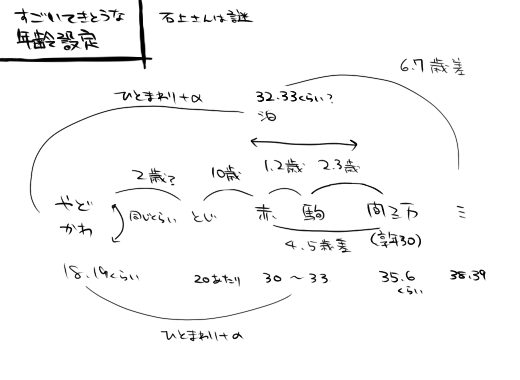 すごいてきとうな
年齢設定
石上さんは謎
6.7歳差
ひとまわり+α
32.33くらい?
泊
2歳?
10歳
1.2歳
2.3歳
やど
かわ
同じくらい
とじ
赤
駒
ミ
4.5歳差
(享年30)
18.19くらい
20あたり
30〜33
35.6
くらい
38.39
ひとまわり+α